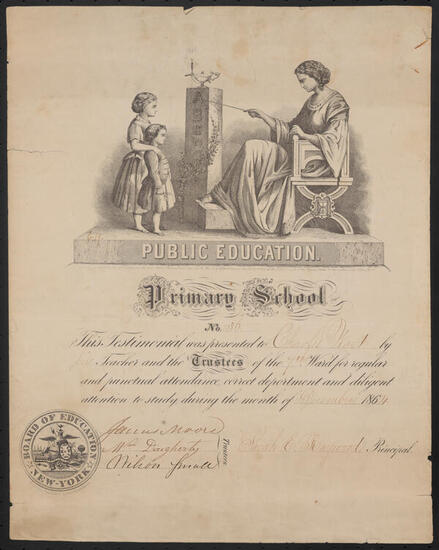 A B C
PUBLIC EDUCATION.
Primary School
No. 30
This Testimonial was presented to Charles by
Teacher and the Trustees of the 7th Ward for regular
and punctual attendance, correct deportment and diligent
attention to study, during the month of December 1864
BOARD OF EDUCATION
NEW-YORK
James Moore
Wm Daugherty
Wilson Small
Trustees
Sarah Principal.